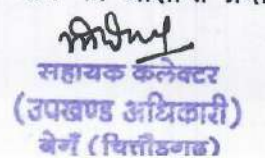 सहायक कलेक्टर
(उपखण्ड अधिकारी)
बेगूँ (चित्तौडगढ)